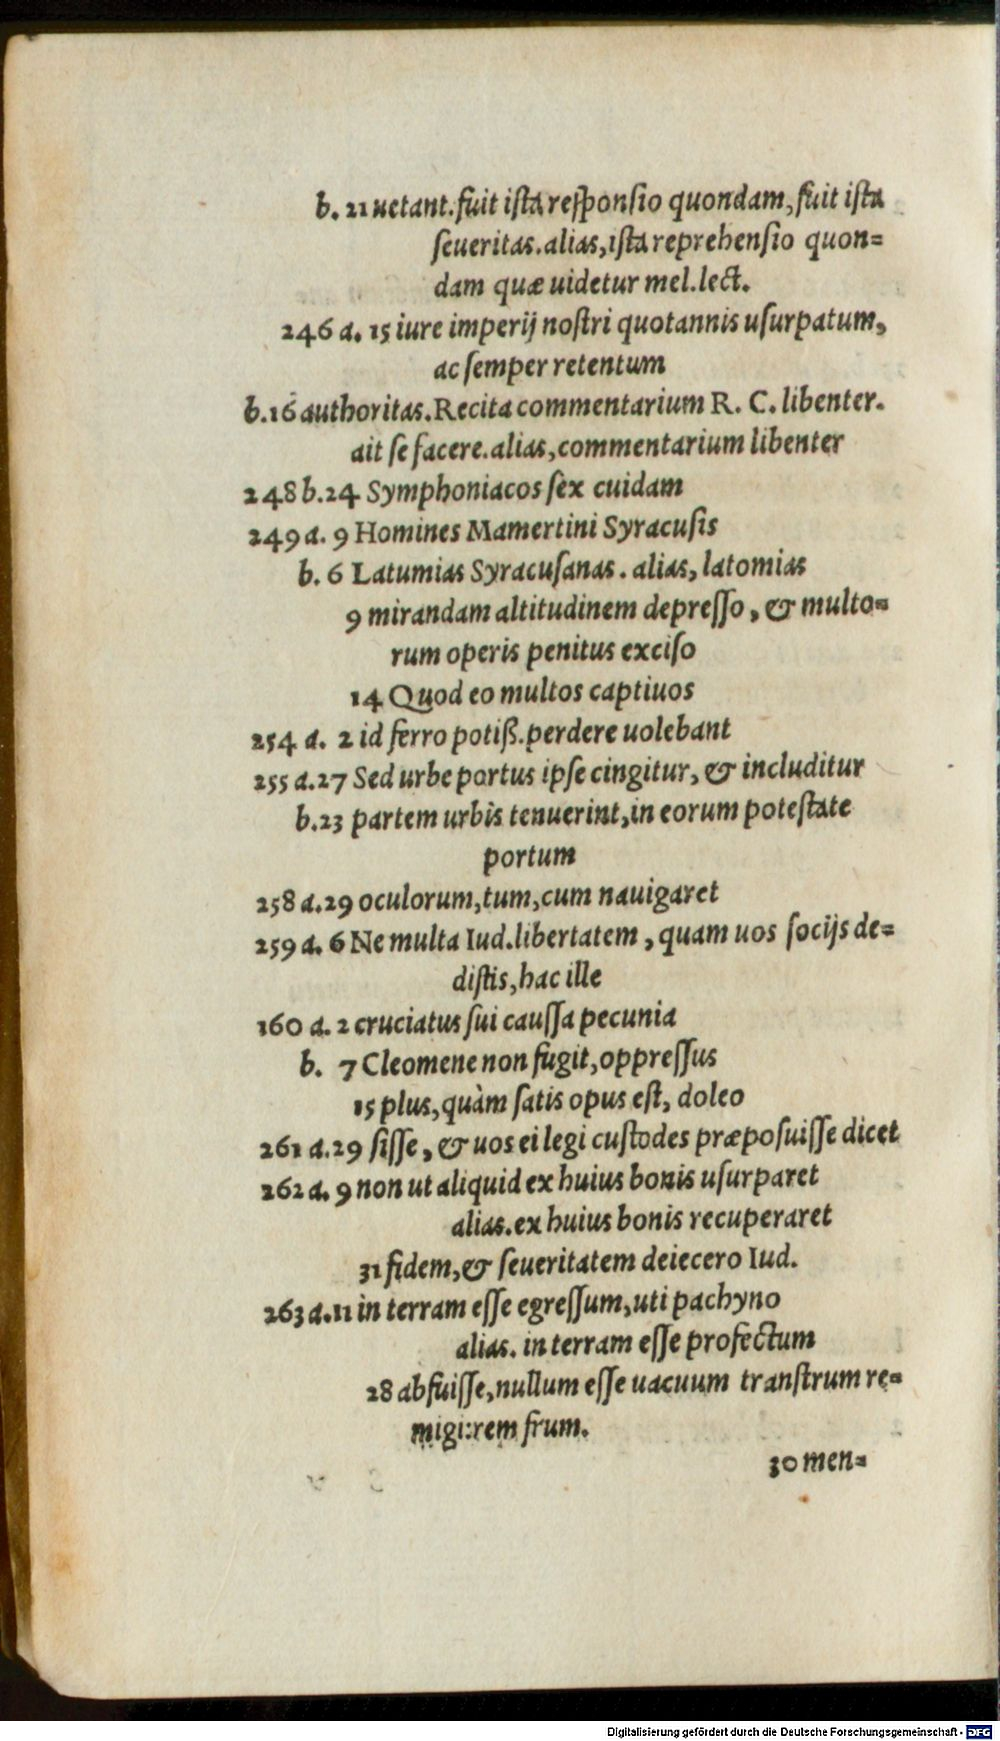 b. 21 uetant. fuit ista responsio quondam, fuit ista
seueritas. alias, ista reprehensio quon=
dam quæ uidetur mel. lect.
246 a. 15 iure imperij nostri quotannis usurpatum,
ac semper retentum
b. 16 authoritas. Recita commentarium R. C. libenter.
ait se facere. alias, commentarium libenter
248 b. 24 Symphoniacos sex cuidam
249 a. 9 Homines Mamertini Syracusis
b. 6 Latumias Syracusanas. alias, latomias
9 mirandam altitudinem depresso, & multo=
rum operis penitus exciso
14 Quod eo multos captiuos
254 a. 2 id ferro potiß. perdere uolebant
255 a. 27 Sed urbe portus ipse cingitur, & includitur
b. 23 partem urbis tenuerint, in eorum potestate
portum
258 a. 29 oculorum, tum, cum nauigaret
259 a. 6 Ne multa Iud. libertatem, quam uos socijs de=
distis, hac ille
160 a. 2 cruciatus sui caussa pecunia
b. 7 Cleomene non fugit, oppressus
15 plus, quàm satis opus est, doleo
261 a. 29 sisse, & uos ei legi custodes præposuisse dicet
262 a. 9 non ut aliquid ex huius bonis usurparet
alias. ex huius bonis recuperaret
31 fidem, & seueritatem deiecero Iud.
263 a. 11 in terram esse egressum, uti pachyno
alias. in terram esse profectum
28 abfuisse, nullum esse uacuum transtrum re=
migi: rem frum.
30 men=
Digitalisierung gefördert durch die Deutsche Forschungsgemeinschaft - DFG